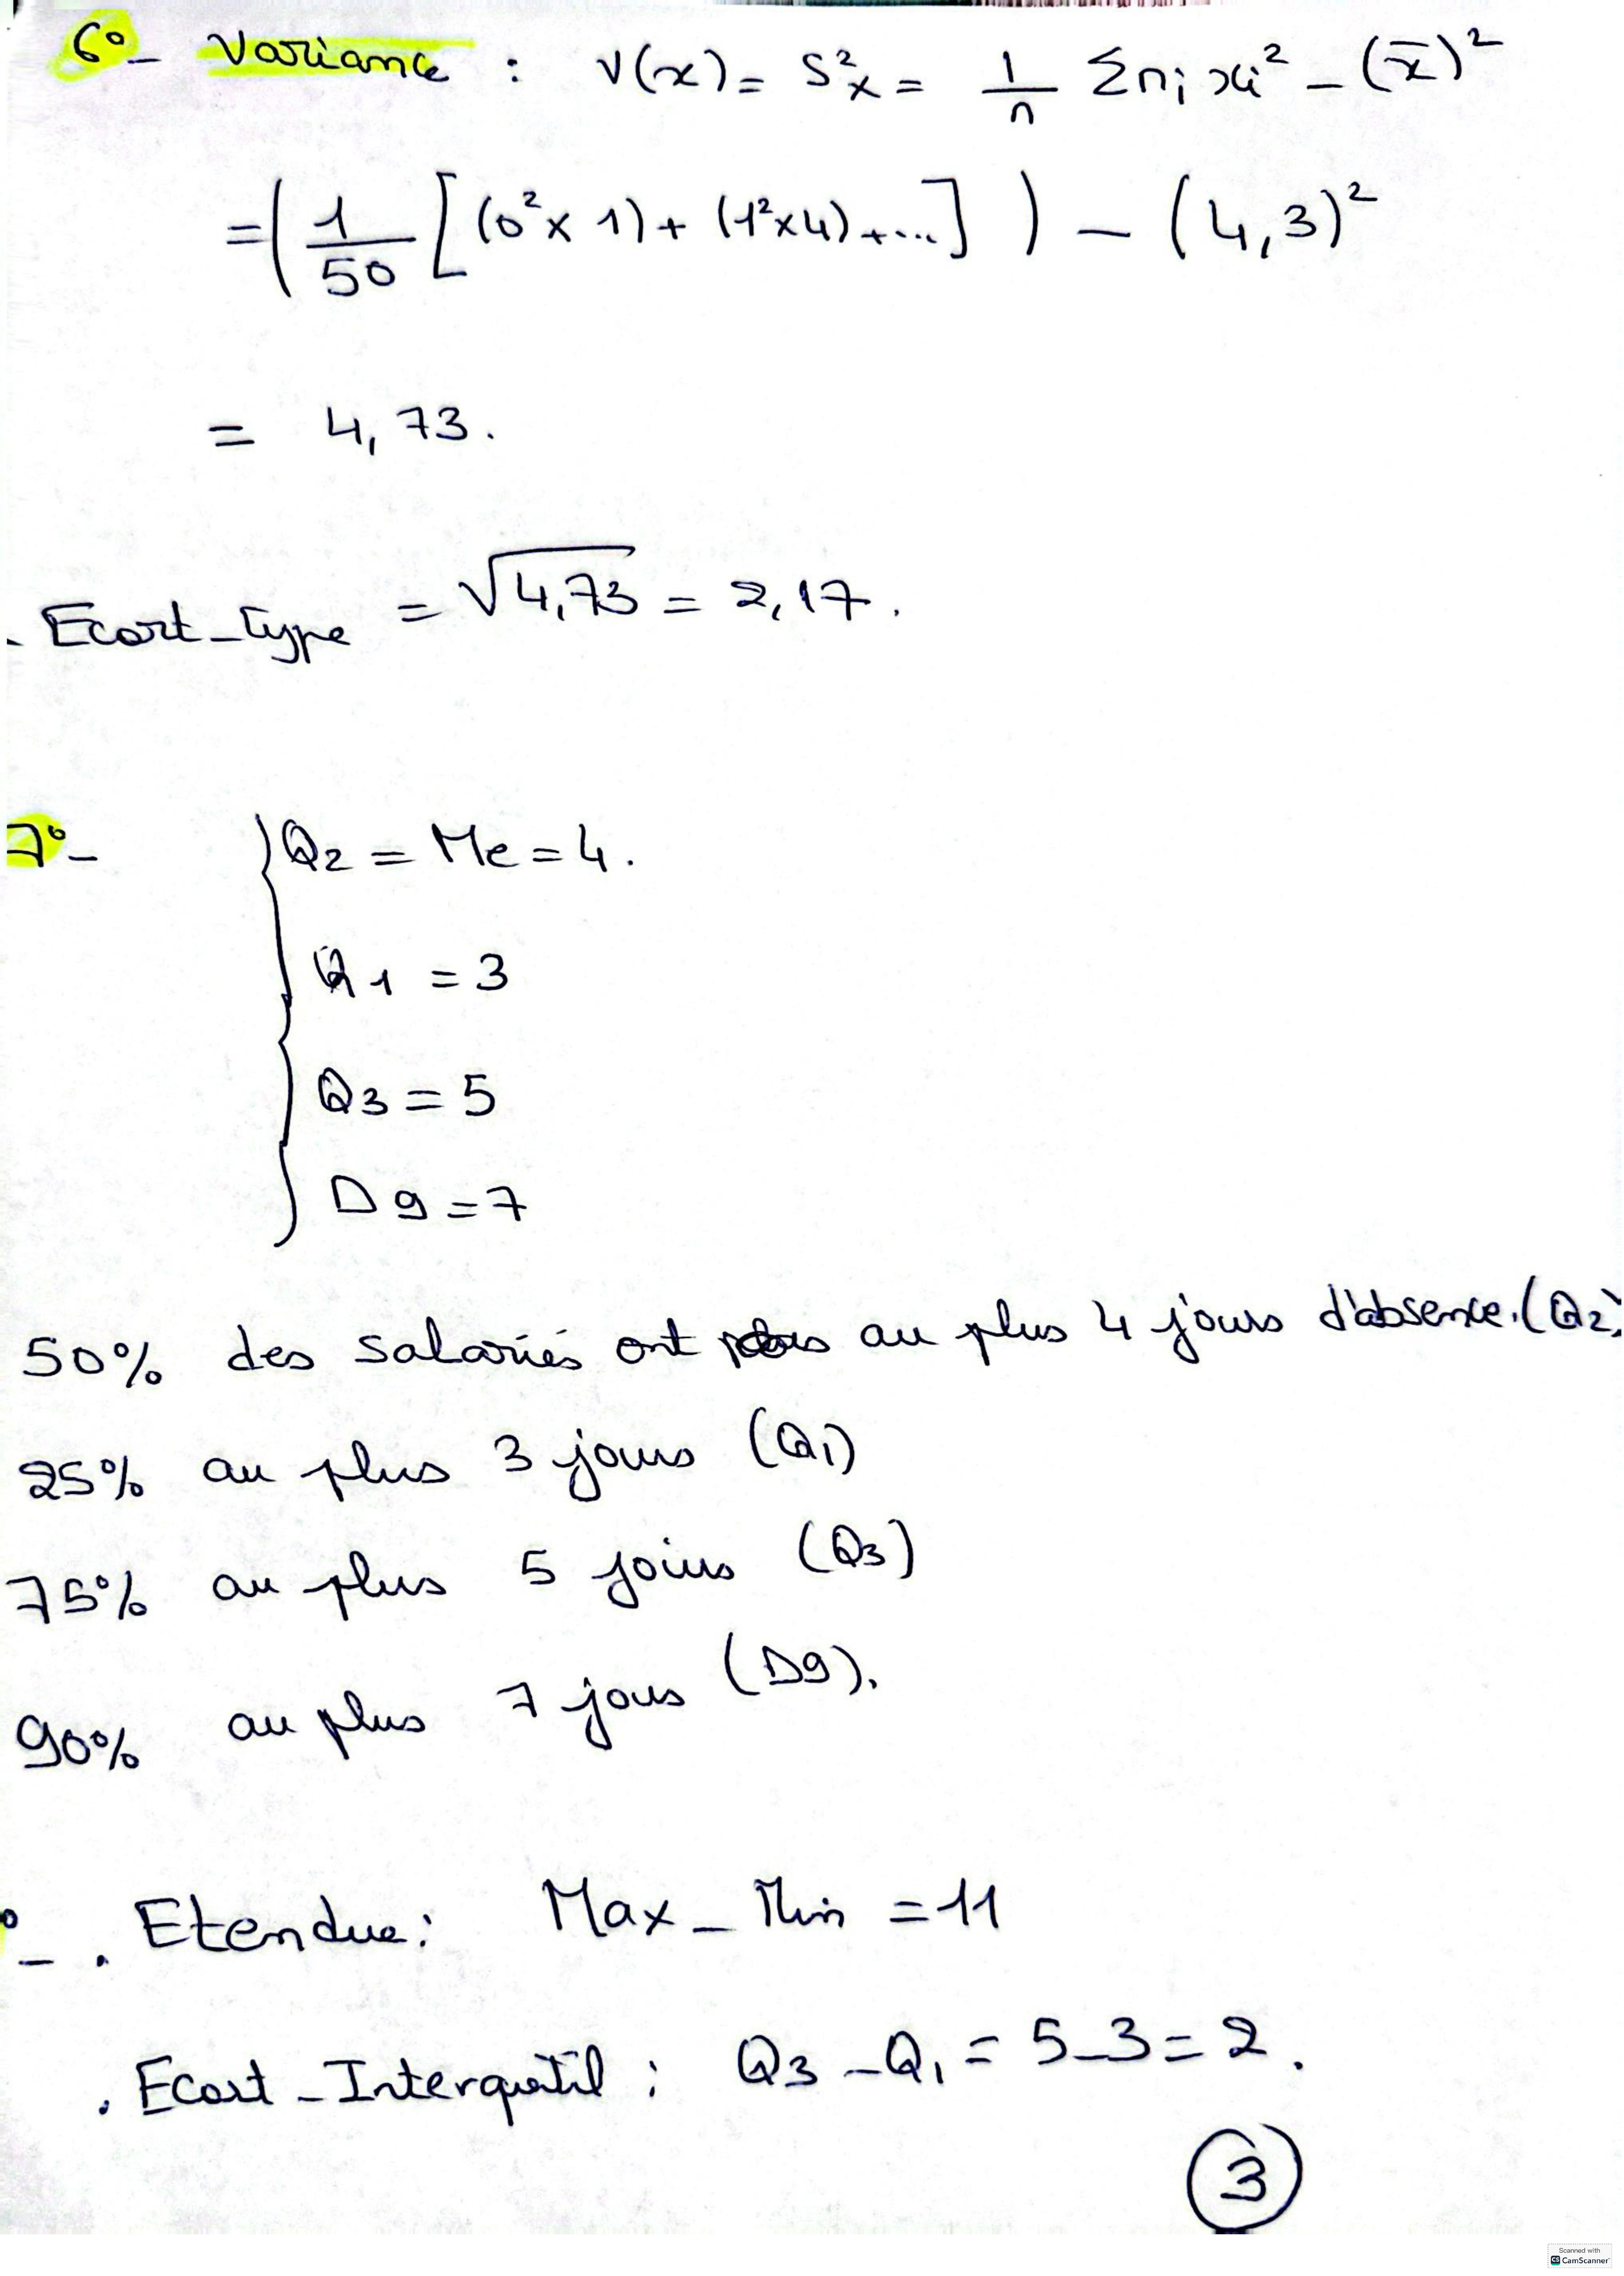 6°- Variance : V(x) = S²x = 1/n Σ ni xi² - (x̄)²
= ( 1/50 [ (0² x 1) + (1² x 4) + ... ] ) - (4,3)²
= 4,73.
. Ecart-Type = √4,73 = 2,17.
7°- Q2 = Me = 4.
Q1 = 3
Q3 = 5
D9 = 7
50% des salariés ont au plus 4 jours d'absence. (Q2)
25% au plus 3 jours (Q1)
75% au plus 5 jours (Q3)
90% au plus 7 jours (D9).
°- . Etendue : Max - Min = 11
. Ecart-Interquatil : Q3 - Q1 = 5 - 3 = 2.
3
Scanned with
CS CamScanner